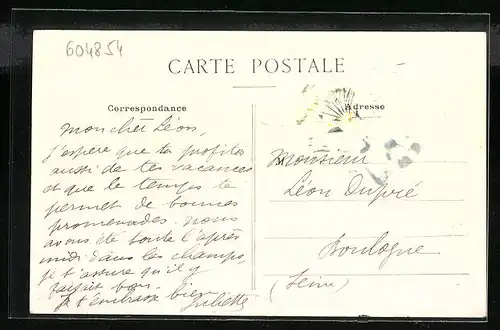 604854
CARTE POSTALE
Correspondance
Adresse
Mon cher Léon,
J'espère que tu profites
aussi de tes vacances
et que le temps te
permet de bonnes
promenades. nous
avons été toute l'après
midi dans les champs,
je t'assure qu'il y
faisait bon.
Je t'embrasse bien
Juliette
Monsieur
Léon Dupré
Boulogne
(Seine)